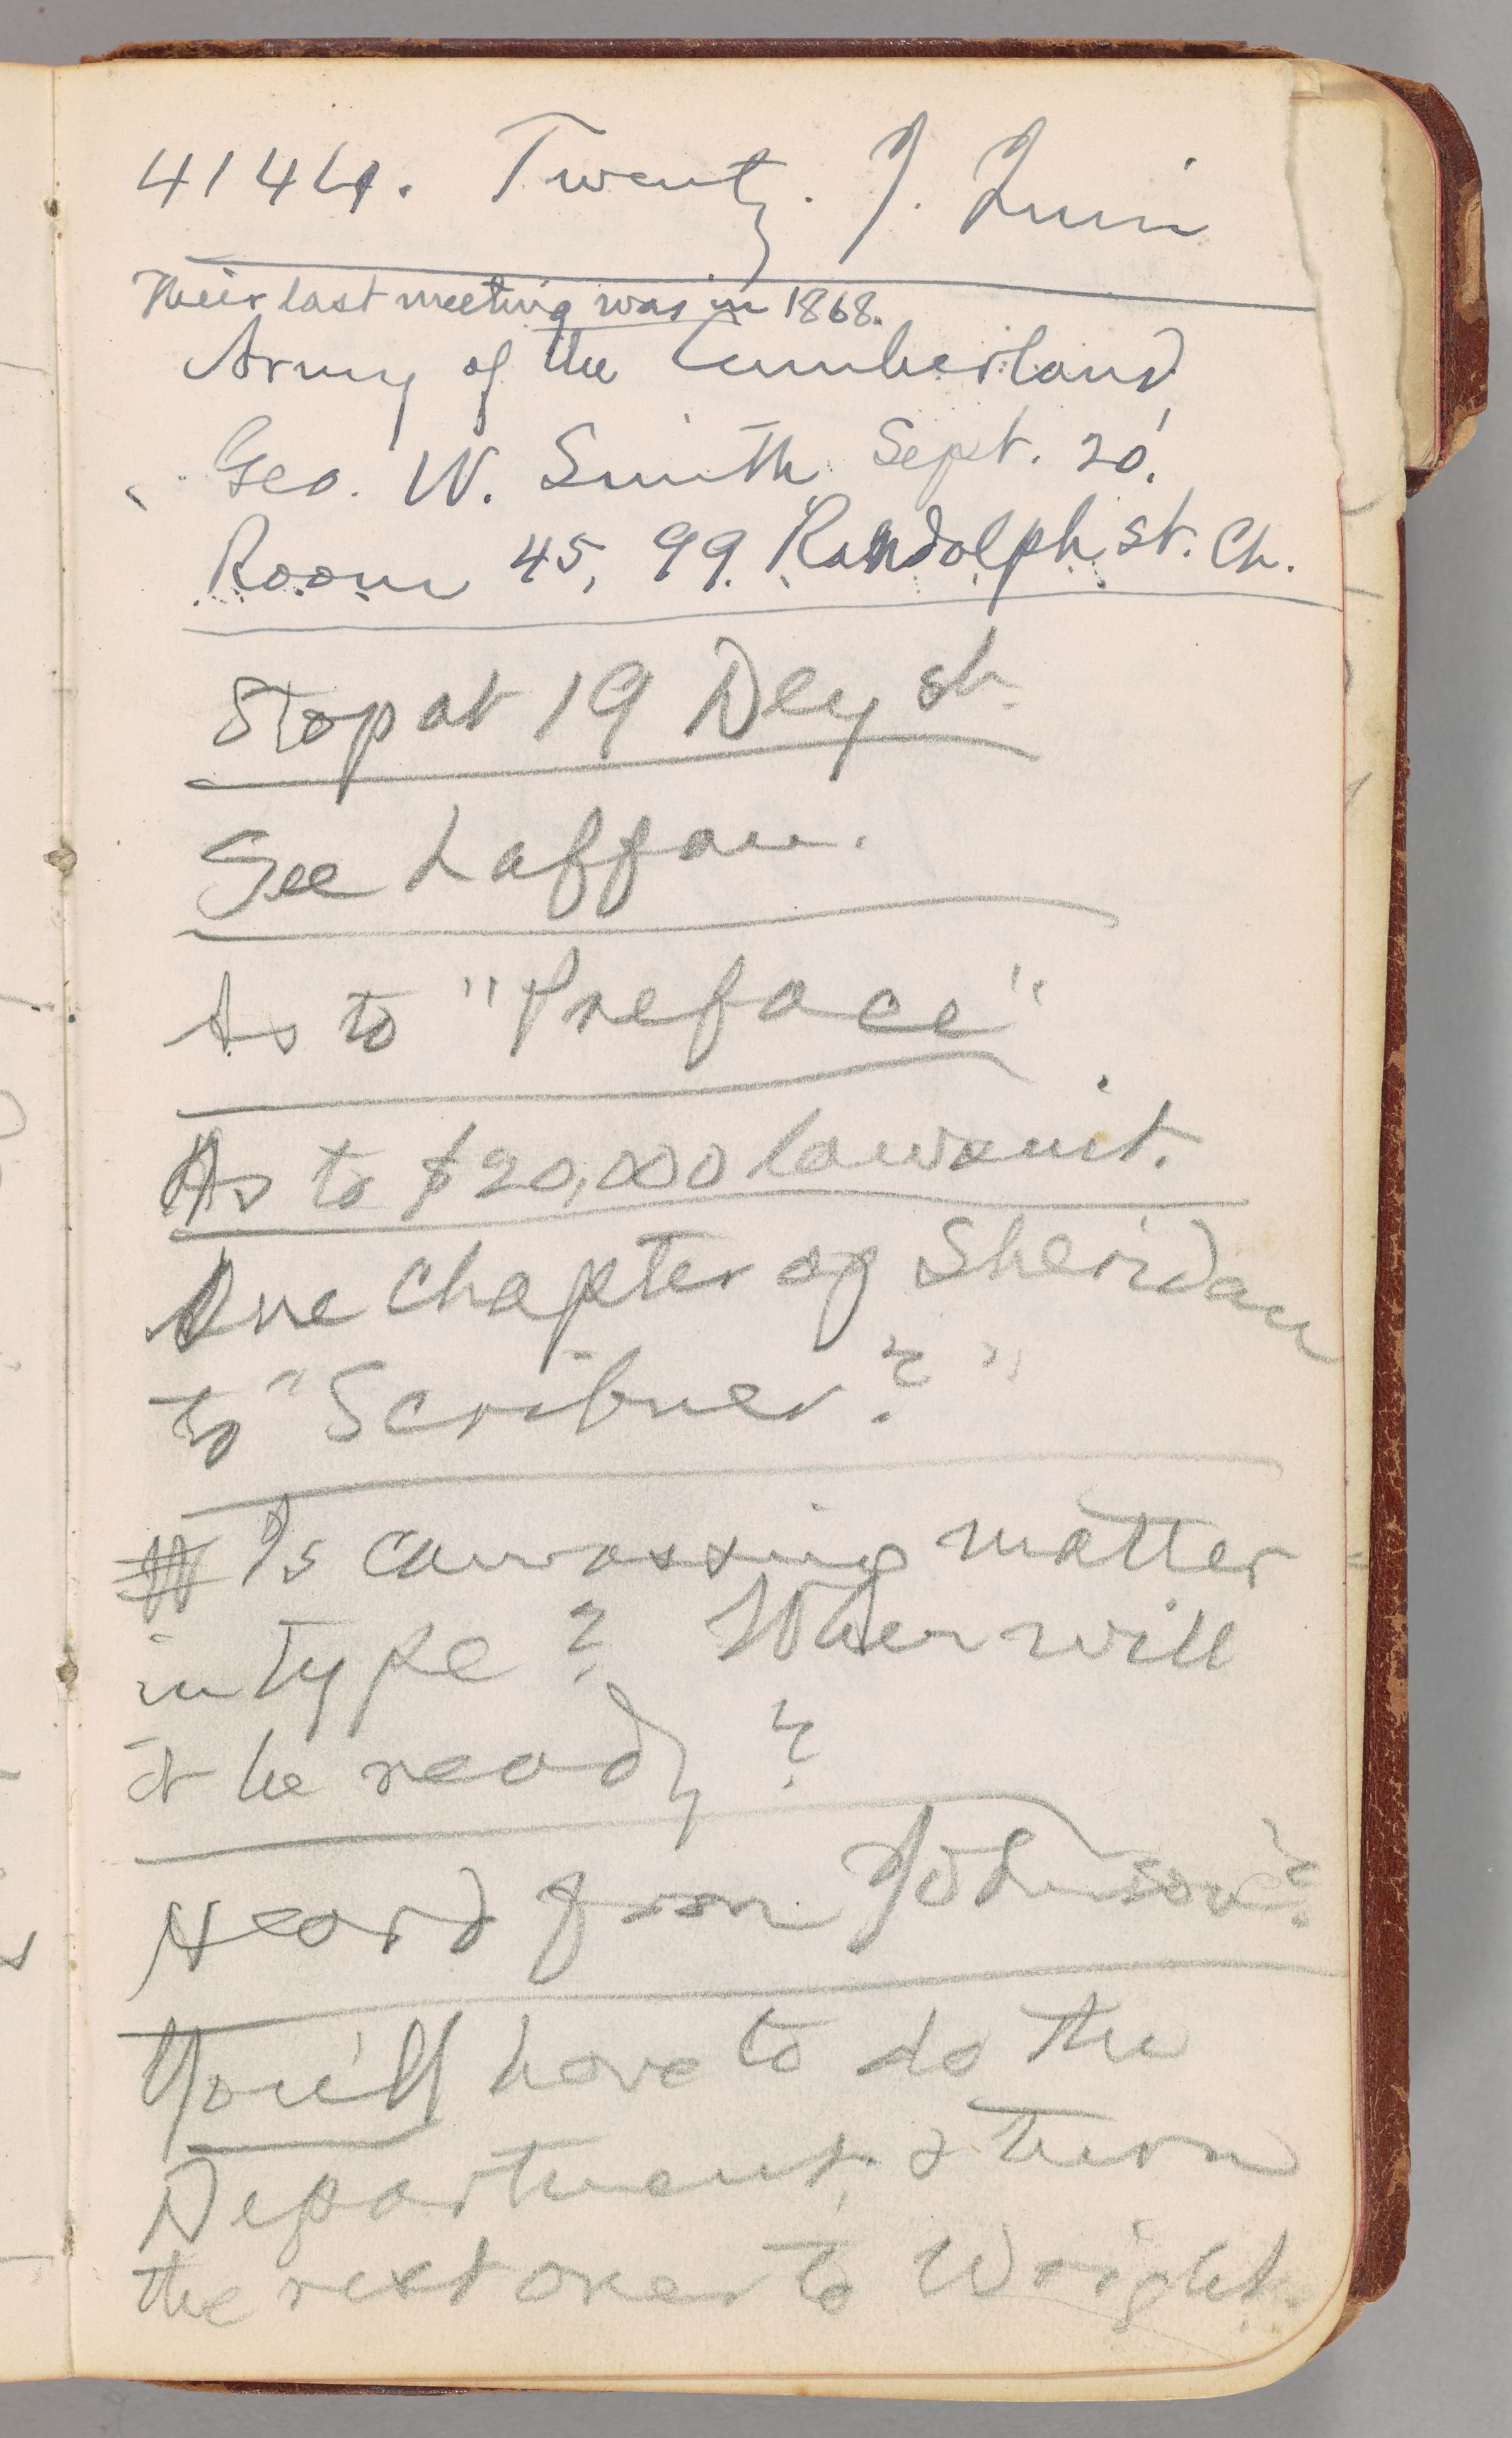 4144. Twenty. J. Quin
Their last meeting was in 1868.
Army of the Cumberland
Geo. W. Smith Sept. 20.
Room 45, 99 Randolph st. Ch.
Stop at 19 Dey st.
See Laffan.
As to "Preface"
As to $20,000 lawsuit.
One chapter of Sheridan
to "Scribner?"
Is canvassing matter
in type? When will
it be ready?
Heard from Johnson?
You'll have to do the
Department & turn
the rest over to Wright.